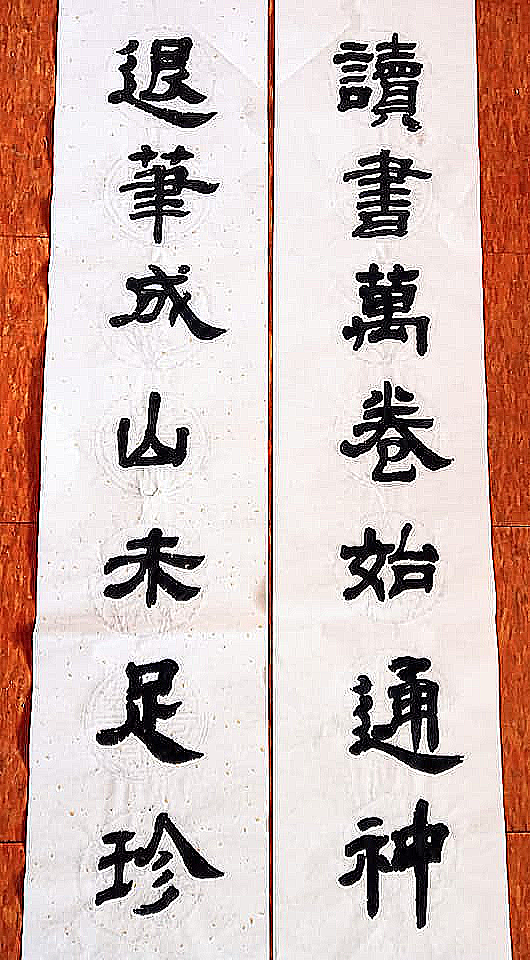 讀書萬卷始通神
退筆成山未足珍